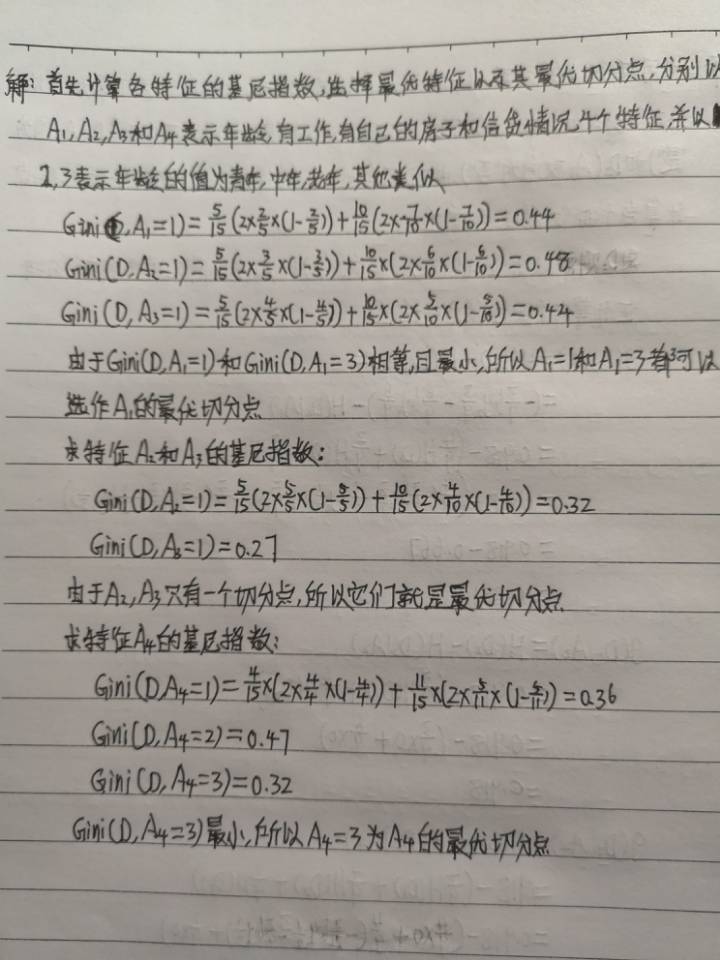 解: 首先计算各特征的基尼指数,选择最优特征以及其最优切分点,分别以
A₁, A₂, A₃和A₄表示年龄,有工作,有自己的房子和信贷情况4个特征,并以
2, 3表示年龄的值为青年,中年,老年,其他类似
Gini(D, A₁=1) = 5/15(2×2/5×(1-2/5)) + 10/15(2×7/10×(1-7/10)) = 0.44
Gini(D, A₂=1) = 5/15(2×3/5×(1-3/5)) + 10/15×(2×6/10×(1-6/10)) = 0.48
Gini(D, A₃=1) = 5/15(2×4/5×(1-4/5)) + 10/15×(2×5/10×(1-5/10)) = 0.44
由于Gini(D, A₁=1)和Gini(D, A₁=3)相等,且最小,所以A₁=1和A₁=3都可以
选作A₁的最优切分点
求特征A₂和A₃的基尼指数:
Gini(D, A₂=1) = 5/15(2×5/5×(1-5/5)) + 10/15(2×4/10×(1-4/10)) = 0.32
Gini(D, A₃=1) = 0.27
由于A₂, A₃只有一个切分点,所以它们就是最优切分点
求特征A₄的基尼指数:
Gini(D, A₄=1) = 4/15×(2×4/4×(1-4/4)) + 11/15×(2×5/11×(1-5/11)) = 0.36
Gini(D, A₄=2) = 0.47
Gini(D, A₄=3) = 0.32
Gini(D, A₄=3)最小,所以A₄=3为A₄的最优切分点